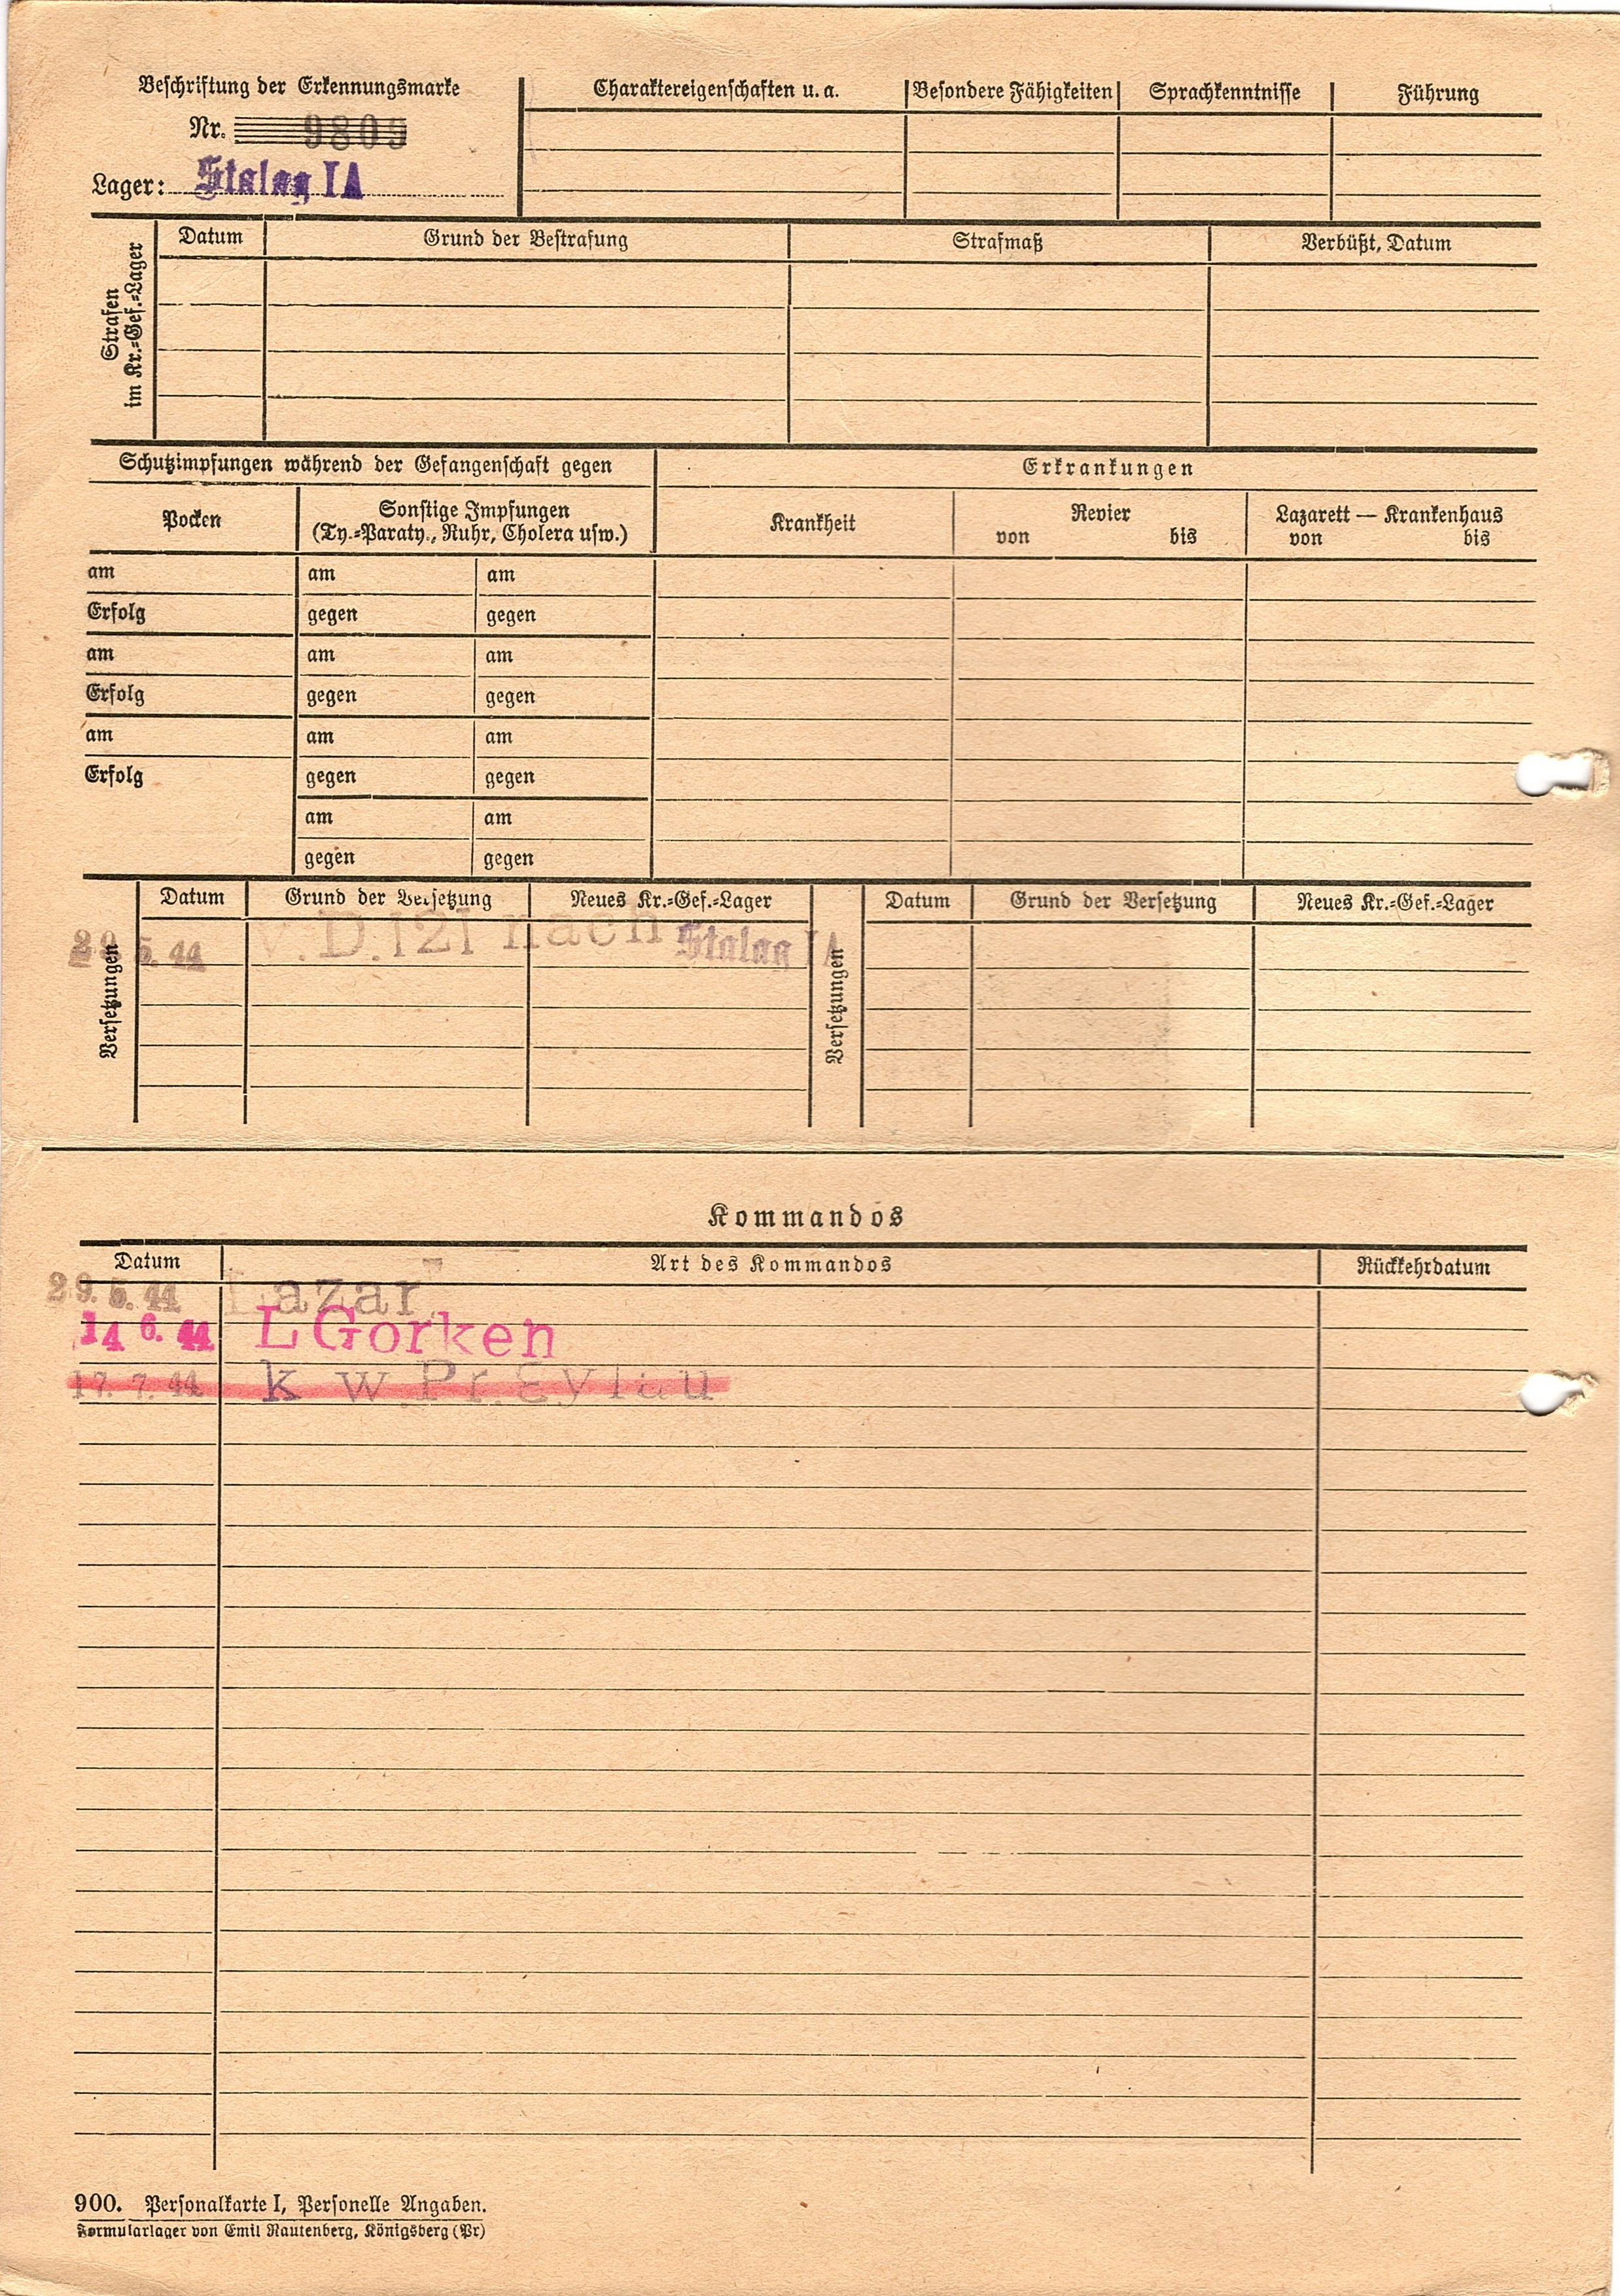 Beschriftung der Erkennungsmarke
Nr. 9809
Lager: Stalag IA
Charaktereigenschaften u. a.
Besondere Fähigkeiten
Sprachkenntnisse
Führung
Strafen
im Kr.=Gef.=Lager
Datum
Grund der Bestrafung
Strafmaß
Verbüßt, Datum
Schutzimpfungen während der Gefangenschaft gegen
Erkrankungen
Pocken
Sonstige Impfungen
(Ty.=Paraty., Ruhr, Cholera usw.)
Krankheit
Revier
von bis
Lazarett — Krankenhaus
von bis
am am am
Erfolg gegen gegen
am am am
Erfolg gegen gegen
am am am
Erfolg gegen gegen
am am
gegen gegen
Versetzungen
Datum Grund der Versetzung Neues Kr.=Gef.=Lager
29. 5. 44 v. D. 121 nach Stalag IA
Versetzungen
Datum Grund der Versetzung Neues Kr.=Gef.=Lager
Kommandos
Datum Art des Kommandos Rückkehrdatum
29. 5. 44 Lazar
14 6. 44 L Gorken
17. 7. 44 k w Pr. Eylau
900. Personalkarte I, Personelle Angaben.
Formularlager von Emil Rautenberg, Königsberg (Pr)